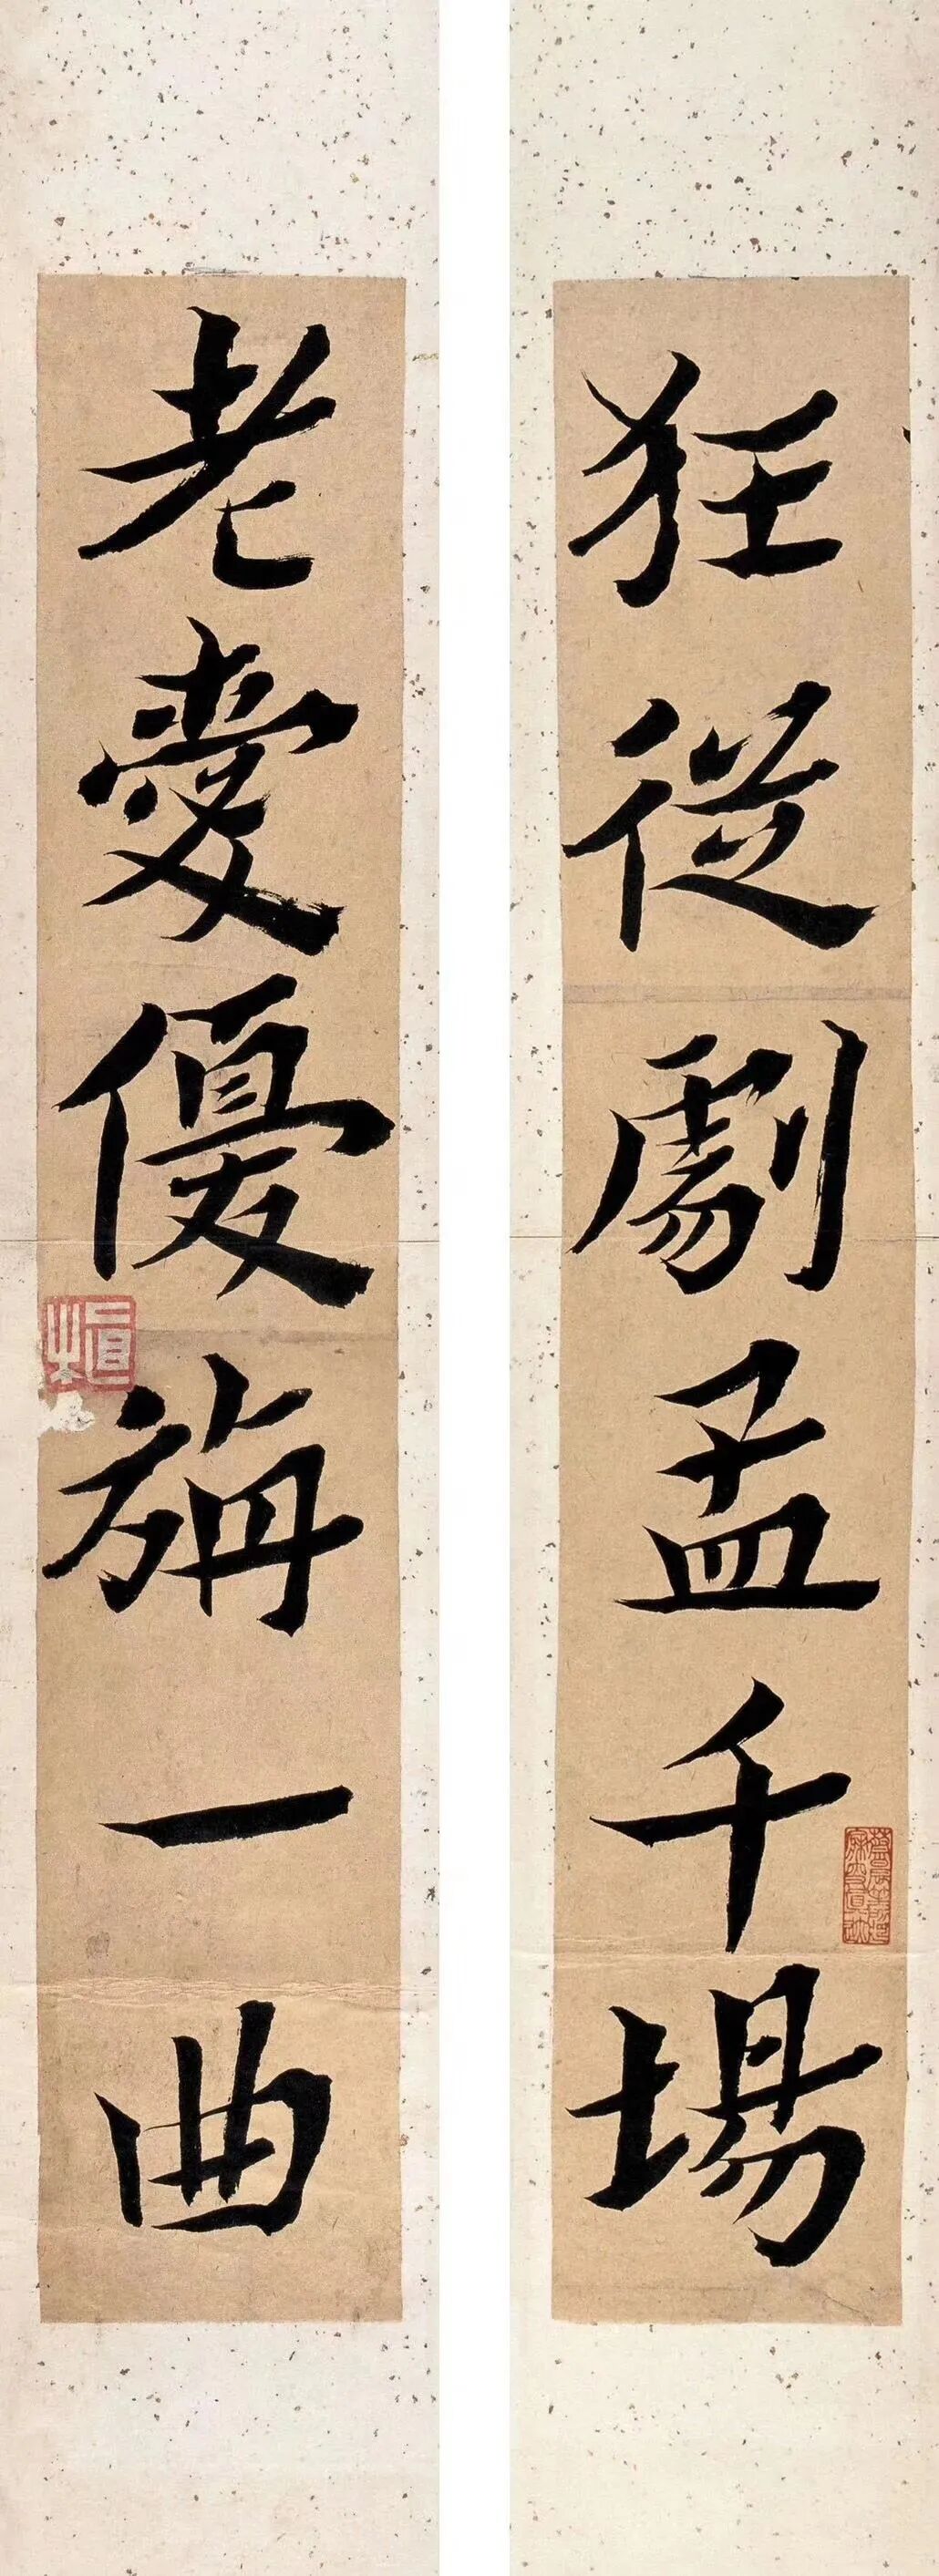 狂從劇孟千場
老愛優旃一曲